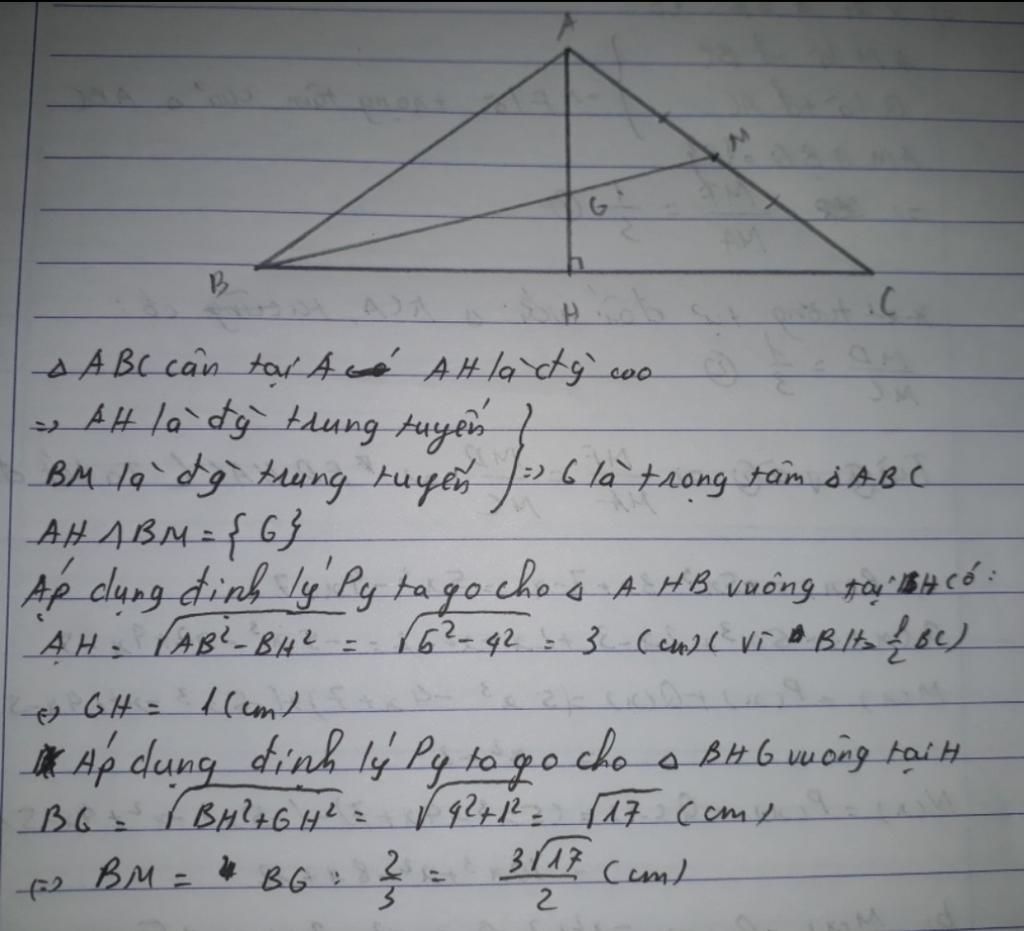 A
M
G
B
H
C
Δ ABC cân tại A có AH là đg` cao
=> AH là đg` trung tuyến
BM là đg` trung tuyến } => G là trọng tâm Δ ABC
AH ∩ BM = {G}
Áp dụng định lý Pytago cho Δ AHB vuông tại H có:
AH = √(AB² - BH²) = √(5² - 4²) = 3 (cm) (vì BH = 1/2 BC)
<=> GH = 1 (cm)
Áp dụng định lý Pytago cho Δ BHG vuông tại H
BG = √(BH² + GH²) = √(4² + 1²) = √17 (cm)
<=> BM = BG : 2/3 = 3√17/2 (cm)